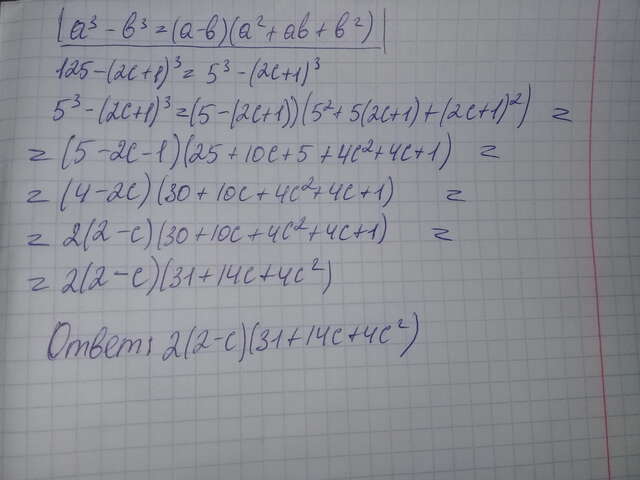 a³ - b³ = (a-b)(a² + ab + b²)
125 - (2c+1)³ = 5³ - (2c+1)³
5³ - (2c+1)³ = (5 - (2c+1))(5² + 5(2c+1) + (2c+1)²) =
= (5 - 2c - 1)(25 + 10c + 5 + 4c² + 4c + 1) =
= (4 - 2c)(30 + 10c + 4c² + 4c + 1) =
= 2(2 - c)(30 + 10c + 4c² + 4c + 1) =
= 2(2 - c)(31 + 14c + 4c²)
Ответ: 2(2 - c)(31 + 14c + 4c²)